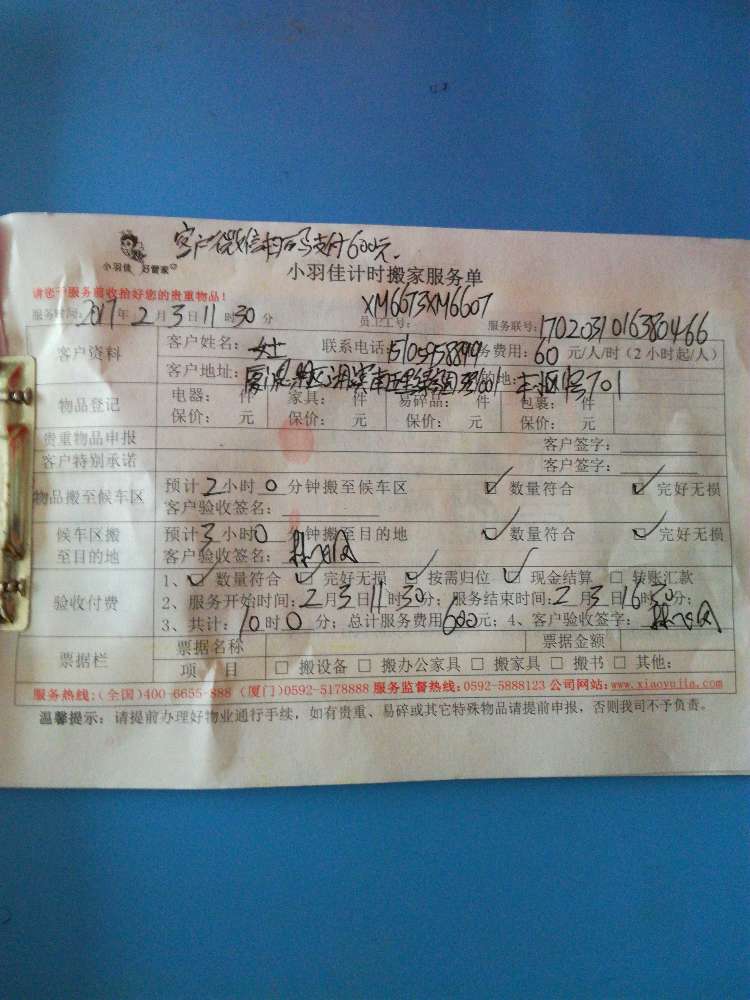 客户微信扫码支付600元.
小羽佳 好管家
小羽佳计时搬家服务单
请您于服务前收拾好您的贵重物品！
XM6673XM6607
服务时间：2017年2月3日11时30分 员工工号： 服务联号：170203101638 0466
客户资料 客户姓名：女士 联系电话：15105958899 服务费用：60元/人/时（2小时起/人）
客户地址：
物品登记 电器： 件 家具： 件 易碎品： 件 包裹： 件
保价： 元 保价： 元 保价： 元 保价： 元
贵重物品申报 客户签字：
客户特别承诺 客户签字：
物品搬至候车区 预计2小时0分钟搬至候车区 数量符合 完好无损
客户验收签名：
候车区搬至目的地 预计3小时0分钟搬至目的地 数量符合 完好无损
客户验收签名：
验收付费 1、 数量符合 完好无损 按需归位 现金结算 转账汇款
2、服务开始时间：2月3日11时30分；服务结束时间：2月3日16时30分；
3、共计：10时0分；总计服务费用600元；4、客户验收签字：
票据栏 票据名称 票据金额
项 目 搬设备 搬办公家具 搬家具 搬书 其他：
服务热线：（全国）400-6655-888（厦门）0592-5178888 服务监督热线：0592-5888123 公司网站：www.xiaoyujia.com
温馨提示：请提前办理好物业通行手续，如有贵重、易碎或其它特殊物品请提前申报，否则我司不予负责。